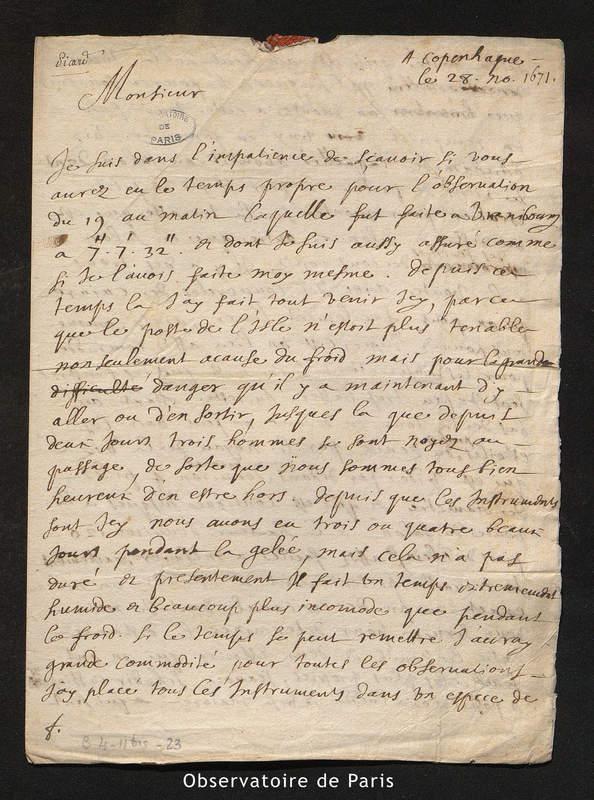 Picard
A Copenhague
le 28. no. 1671.
Monsieur
OBSERVATOIRE
DE
PARIS
Je suis dans l'impatience de scavoir si vous
aurez eu le temps propre pour l'observation
du 19 au matin laquelle fut faite a Uranibourg
a 7. 7. 32". et dont Je suis aussy assuré comme
si Je l'avois faite moy mesme. depuis ce
temps la J'ay fait tout venir Icy, parce
que le poste de l'Isle n'estoit plus tenable
non seulement acause du froid mais pour la grande
difficulté danger qu'il y a maintenant d'y
aller ou d'en sortir, Jusques la que depuis
deux Jours trois hommes se sont noyez au
passage, de sorte que nous sommes tous bien
heureux d'en estre hors. depuis que les Instruments
sont Icy nous avons eu trois ou quatre beaux
Jours pendant la gelée, mais cela n'a pas
duré et presentement Il fait un temps extremement
humide et beaucoup plus incomode que pendant
le froid. si le temps se peut remettre J'auray
grande commodité pour toutes les observations
J'ay placé tous les Instruments dans un espece de
B 4-11bis-23
Observatoire de Paris